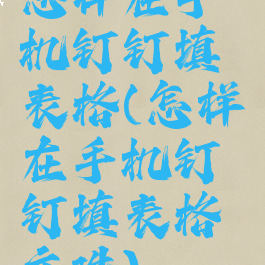 怎样在手
机钉钉填
表格(怎样
在手机钉
钉填表格